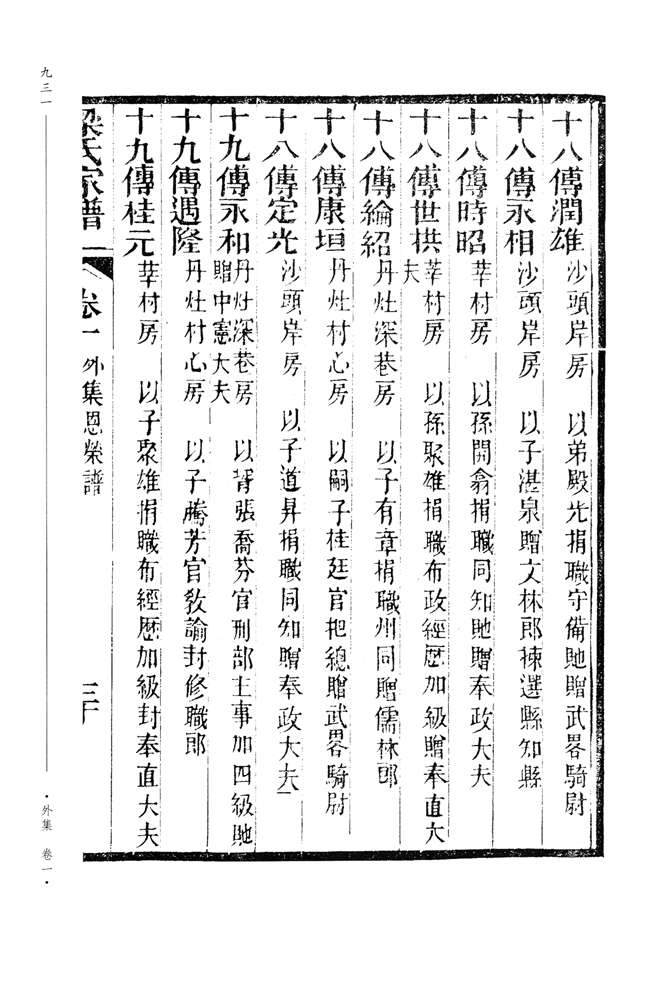 十八傳潤雄 沙頭岸房 以弟殿光捐職守備貤贈武畧騎尉
十八傳永相 沙頭岸房 以子湛泉贈文林郎揀選縣知縣
十八傳時昭 莘村房 以孫開翕捐職同知貤贈奉政大夫
十八傳世拱 莘村房 以孫聚雄捐職布政經歷加級贈奉直大
夫
十八傳綸紹 丹灶深巷房 以子有章捐職州同贈儒林郎
十八傳康垣 丹灶村心房 以嗣子桂廷官把總贈武畧騎尉
十八傳定光 沙頭岸房 以子道昇捐職同知贈奉政大夫
十九傳永和 丹灶深巷房 以壻張喬芬官刑部主事加四級貤
贈中憲大夫
十九傳遇隆 丹灶村心房 以子騰芳官敎諭封修職郎
十九傳桂元 莘村房 以子聚雄捐職布經歷加級封奉直大夫
梁氏家譜 卷一 外集恩榮譜 三十
九三一
·外集 卷一·